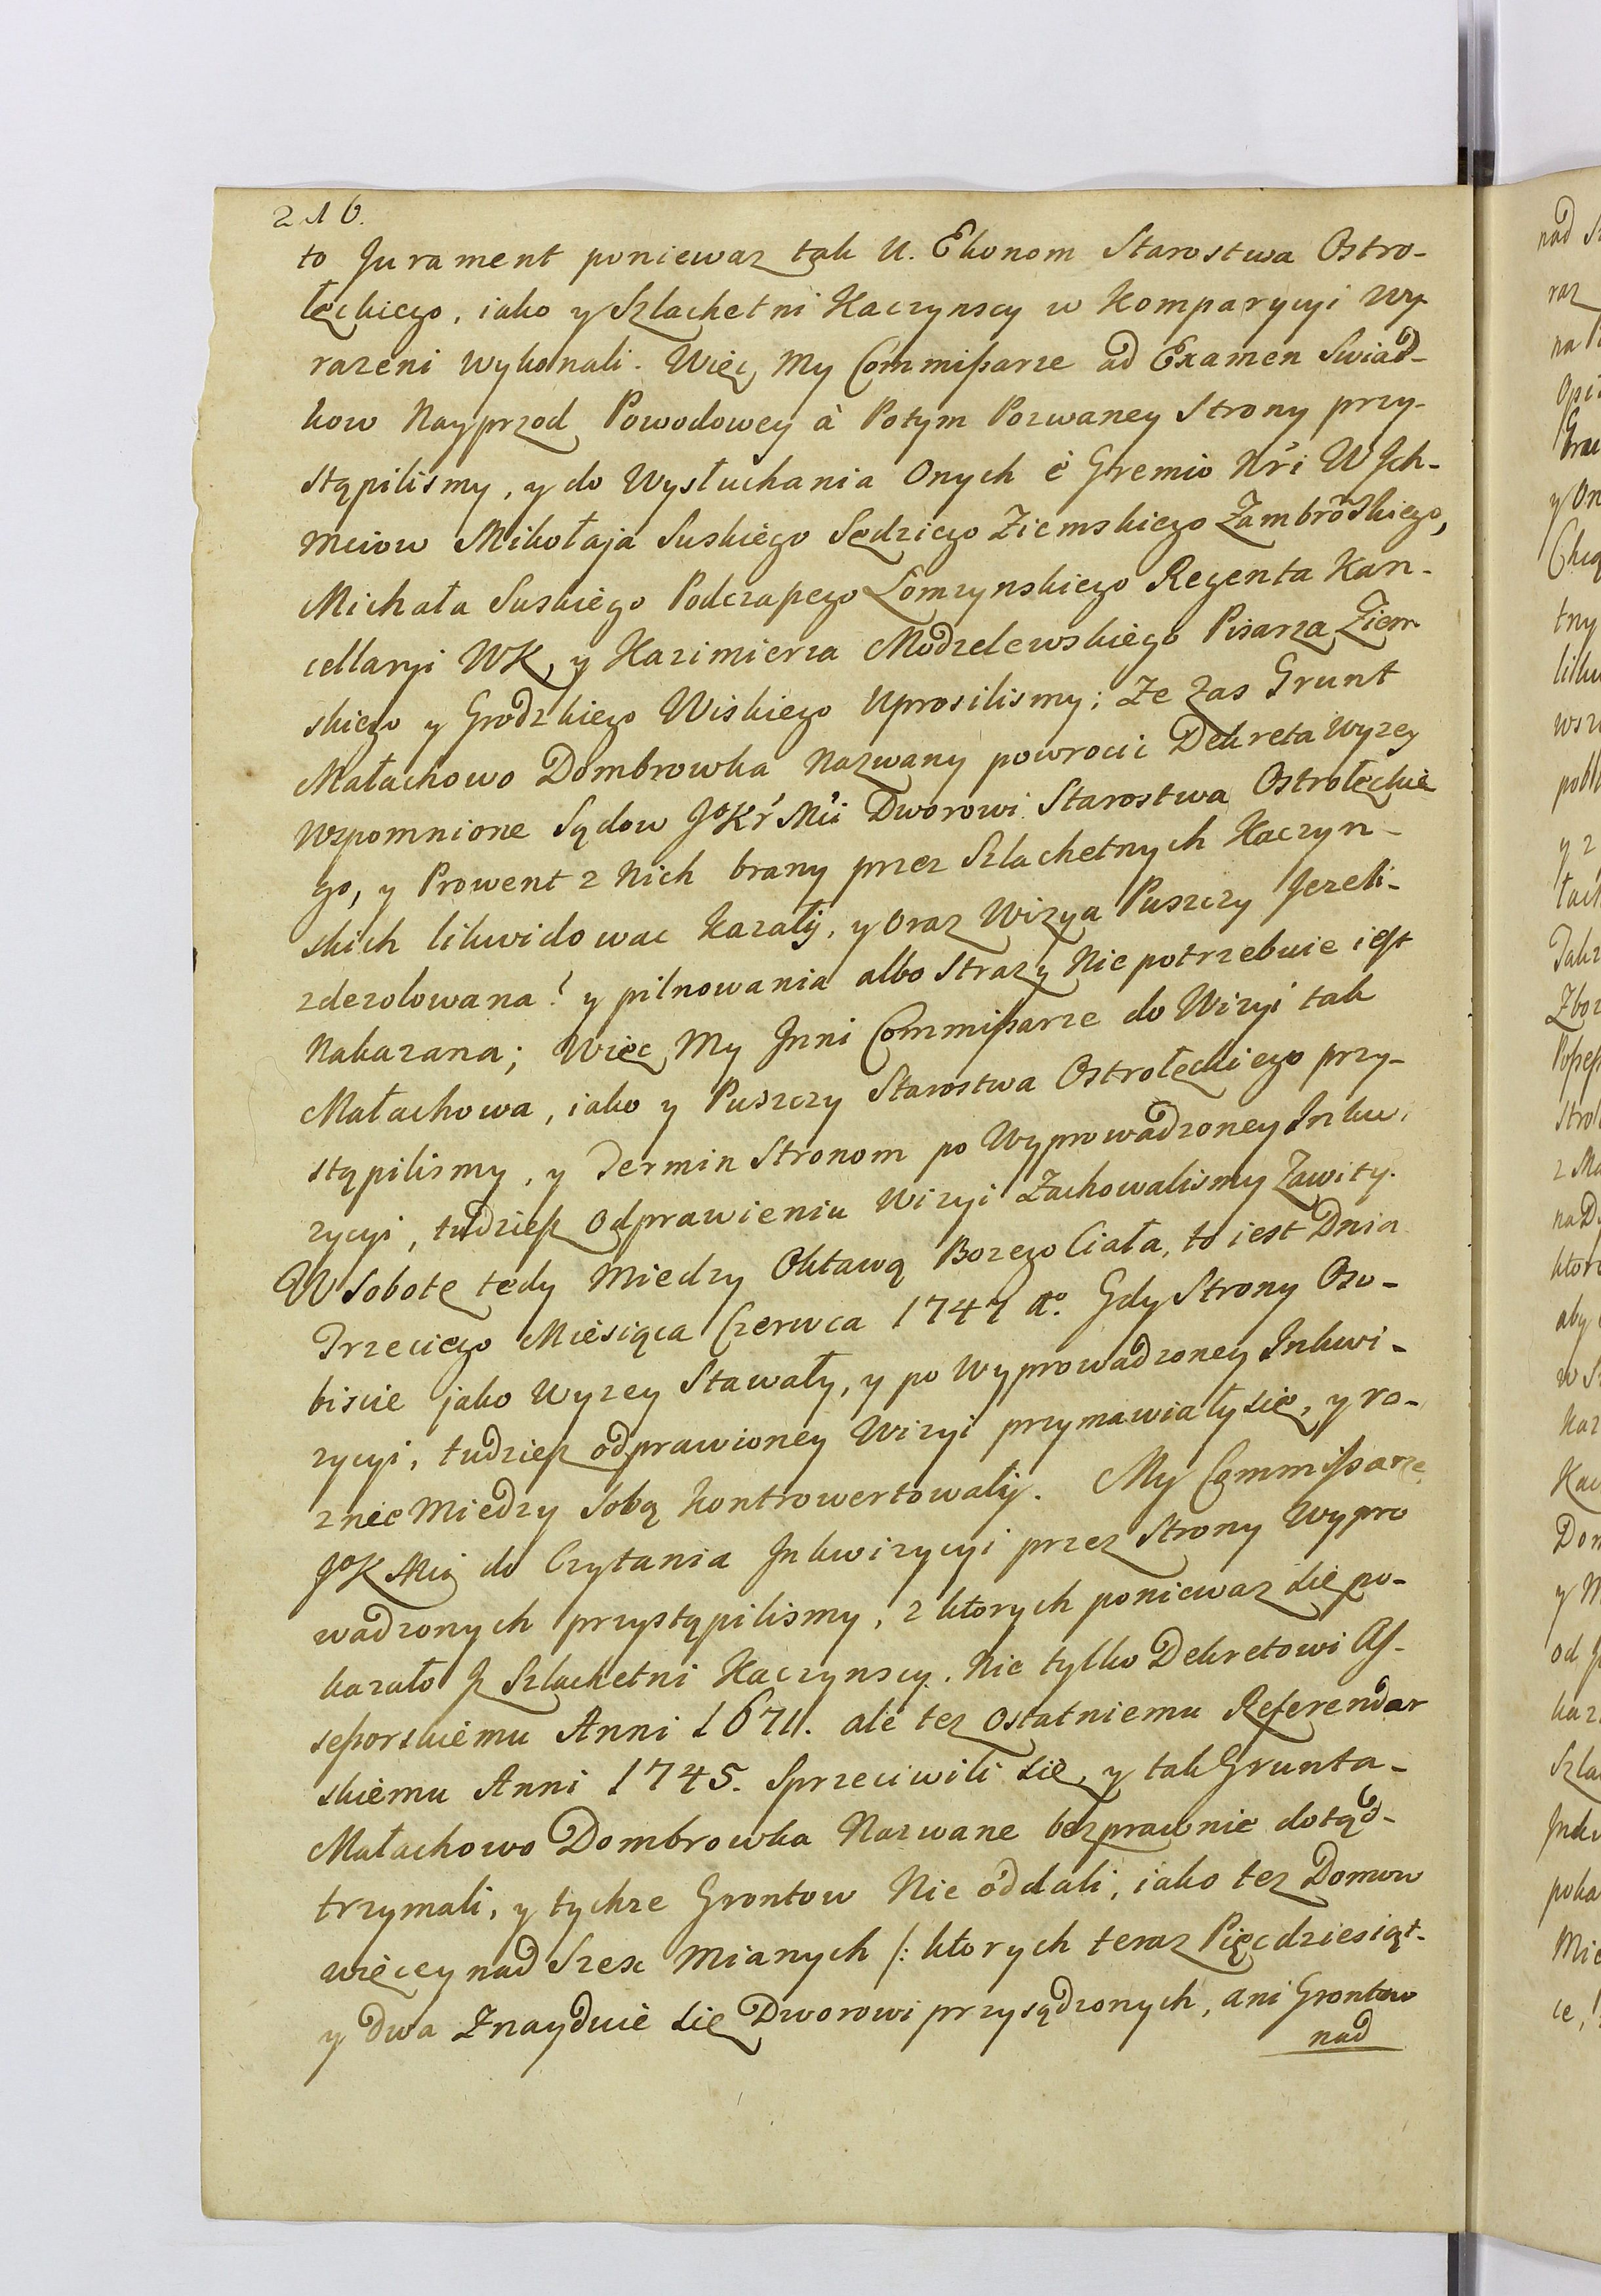 216.
to Jurament poniewaz tak U. Ekonom Starostwa Ostro-
łęckiego, iako y Szlachetni Kaczynscy w Komparycyi wy-
razeni wykonali. Więc My Commißarze ad Examen Swiad-
kow Nayprzod Powodowey à Potym Pozwaney Strony przy-
stąpilismy, y do Wysłuchania Onych è Gremio Nr̃i WJch-
Mciow Mikołaja Suskiego Sędziego Ziemskiego Zambrõskiego,
Michała Suskiego Podczaßego Łomzynskiego Regenta Kan-
cellaryi WK, y Kazimierza Modzelewskiego Pisarza Ziem-
skiego y Grodzkiego Wiskiego Uprosilismy; Ze zas Grunt
Małachowo Dombrowka Nazwany powrocic Dekreta Wyzey
Wspomnione Sądow JoKr̃ Mci Dworowi Starostwa Ostrołęckie
go, y Prowent z Nich brany przez Szlachetnych Kaczyn-
skich likwidowac kazały, y oraz Wizya Puszczy Jezeli-
zdezolowana? y pilnowania albo Strazy Nie potrzebuie iest
Nakazana; Więc My Jnni Commißarze do Wizyi tak
Małachowa, iako y Puszczy Starostwa Ostrołęckiego przy-
stąpilismy, y Termin Stronom po Wyprowadzoney Inkwi.
zycyi, tudzieß Odprawieniu Wizyi Zachowalismy Zawity.
W Sobotę tedy Miedzy Oktawą Bozego Ciała, to iest Dnia
Trzeciego Miesiąca Czerwca 1747 Ao. Gdy Strony Oso-
biscie jako Wyzey Stawały, y po Wyprowadzoney Inkwi-
zycyi, tudzieß odprawioney Wizyi przymawiały się, y ro-
znie Miedzy Sobą kontrowertowały. My Commißarze
JoK Mci do Czytania Jnkwizycyi przez Strony Wypro
wadzonych przystąpilismy, z ktorych poniewaz się po-
kazało Jz Szlachetni Kaczynscy. Nie tylko Dekretowi As-
seßorskiemu Anni 1671. ale tez Ostatniemu Referendar
skiemu Anni 1745. Sprzeciwili się, y tak Grunta-
Małachowo Dombrowka Nazwane bezprawnie dotąd-
trzymali, y tychze Grontow Nie oddali, iako tez Domow
więcey nad Szesc Mianych /: ktorych teraz Pięcdziesiąt-
y dwa Znayduie się Dworowi przysądzonych, ani Grontow
nad